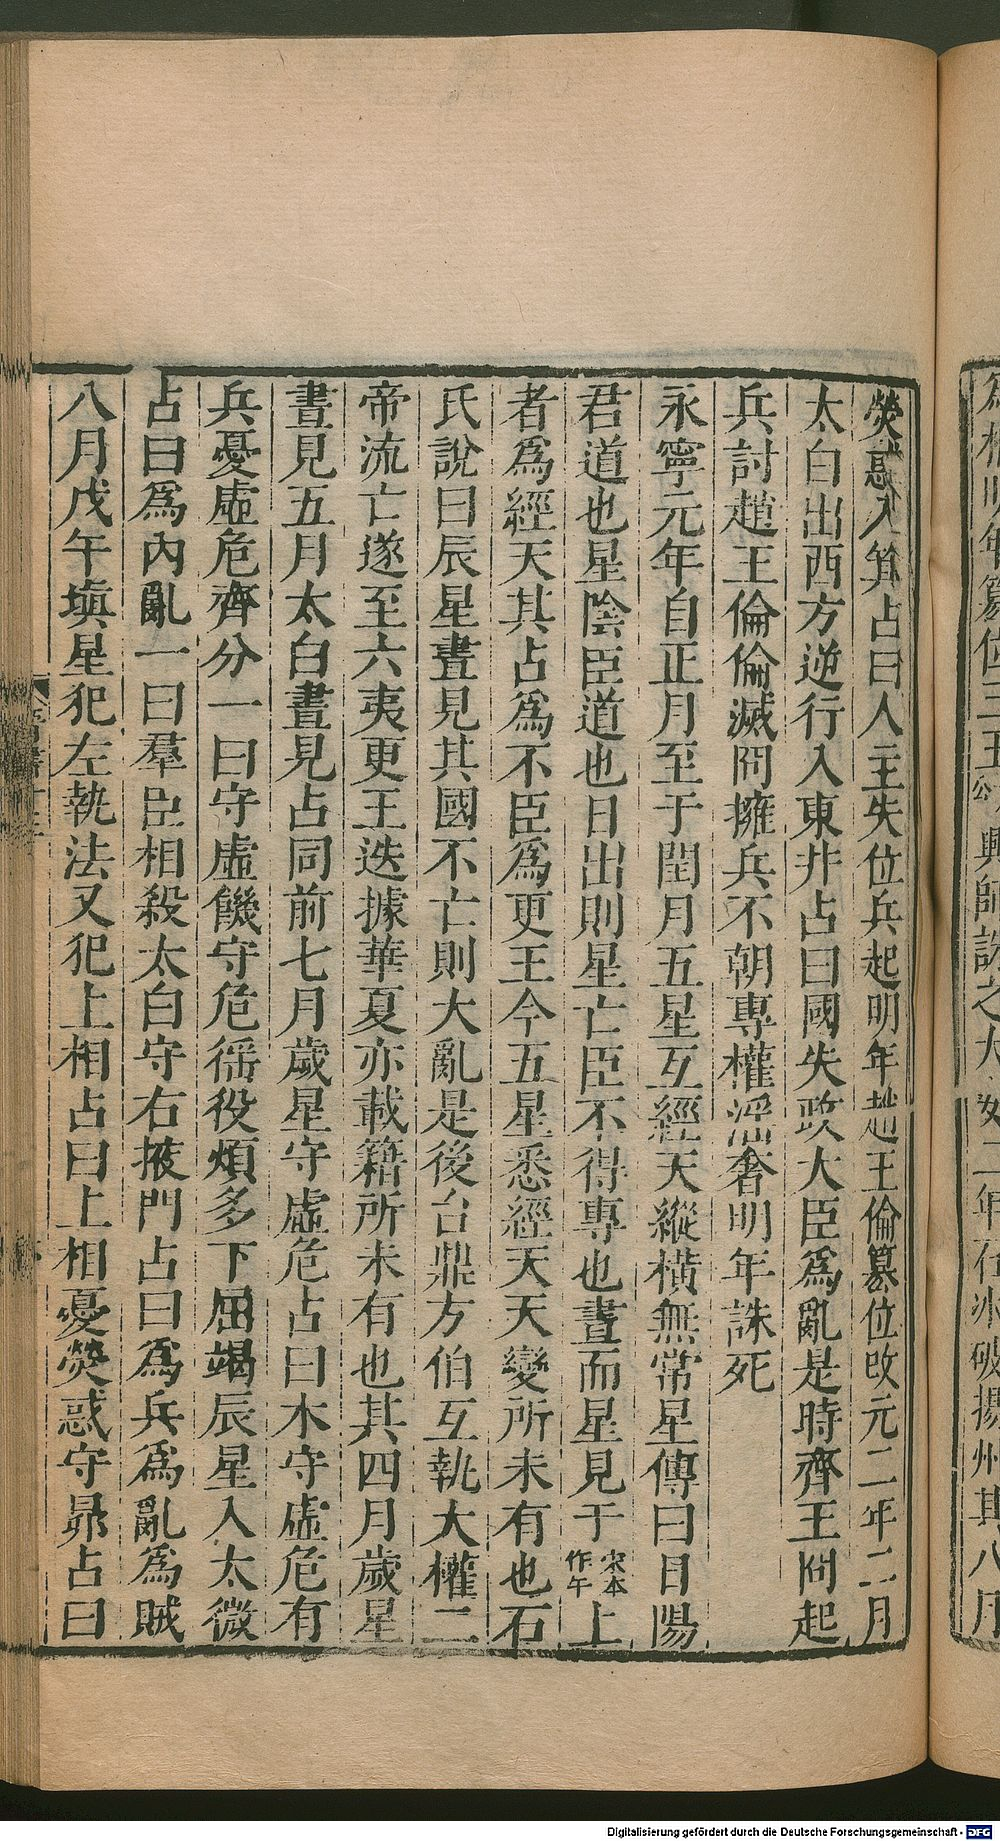 熒惑入箕占曰人主失位兵起明年趙王倫篡位改元二年二月
太白出西方逆行入東井占曰國失政大臣爲亂是時齊王冏起
兵討趙王倫倫滅冏擁兵不朝專權淫奢明年誅死
永寧元年自正月至于閏月五星互經天縱橫無常星傳曰日陽
君道也星陰臣道也日出則星亡臣不得專也晝而星見于宋本作午上
者爲經天其占爲不臣爲更王今五星悉經天天變所未有也石
氏說曰辰星晝見其國不亡則大亂是後台鼎方伯互執大權二
帝流亡遂至六夷更王迭據華夏亦載籍所未有也其四月歲星
晝見五月太白晝見占同前七月歲星守虛危占曰木守虛危有
兵憂虛危齊分一曰守虛饑守危徭役煩多下屈竭辰星入太微
占曰爲內亂一曰羣臣相殺太白守右掖門占曰爲兵爲亂爲賊
八月戊午塡星犯左執法又犯上相占曰上相憂熒惑守昴占曰
Digitalisierung gefördert durch die Deutsche Forschungsgemeinschaft - DFG